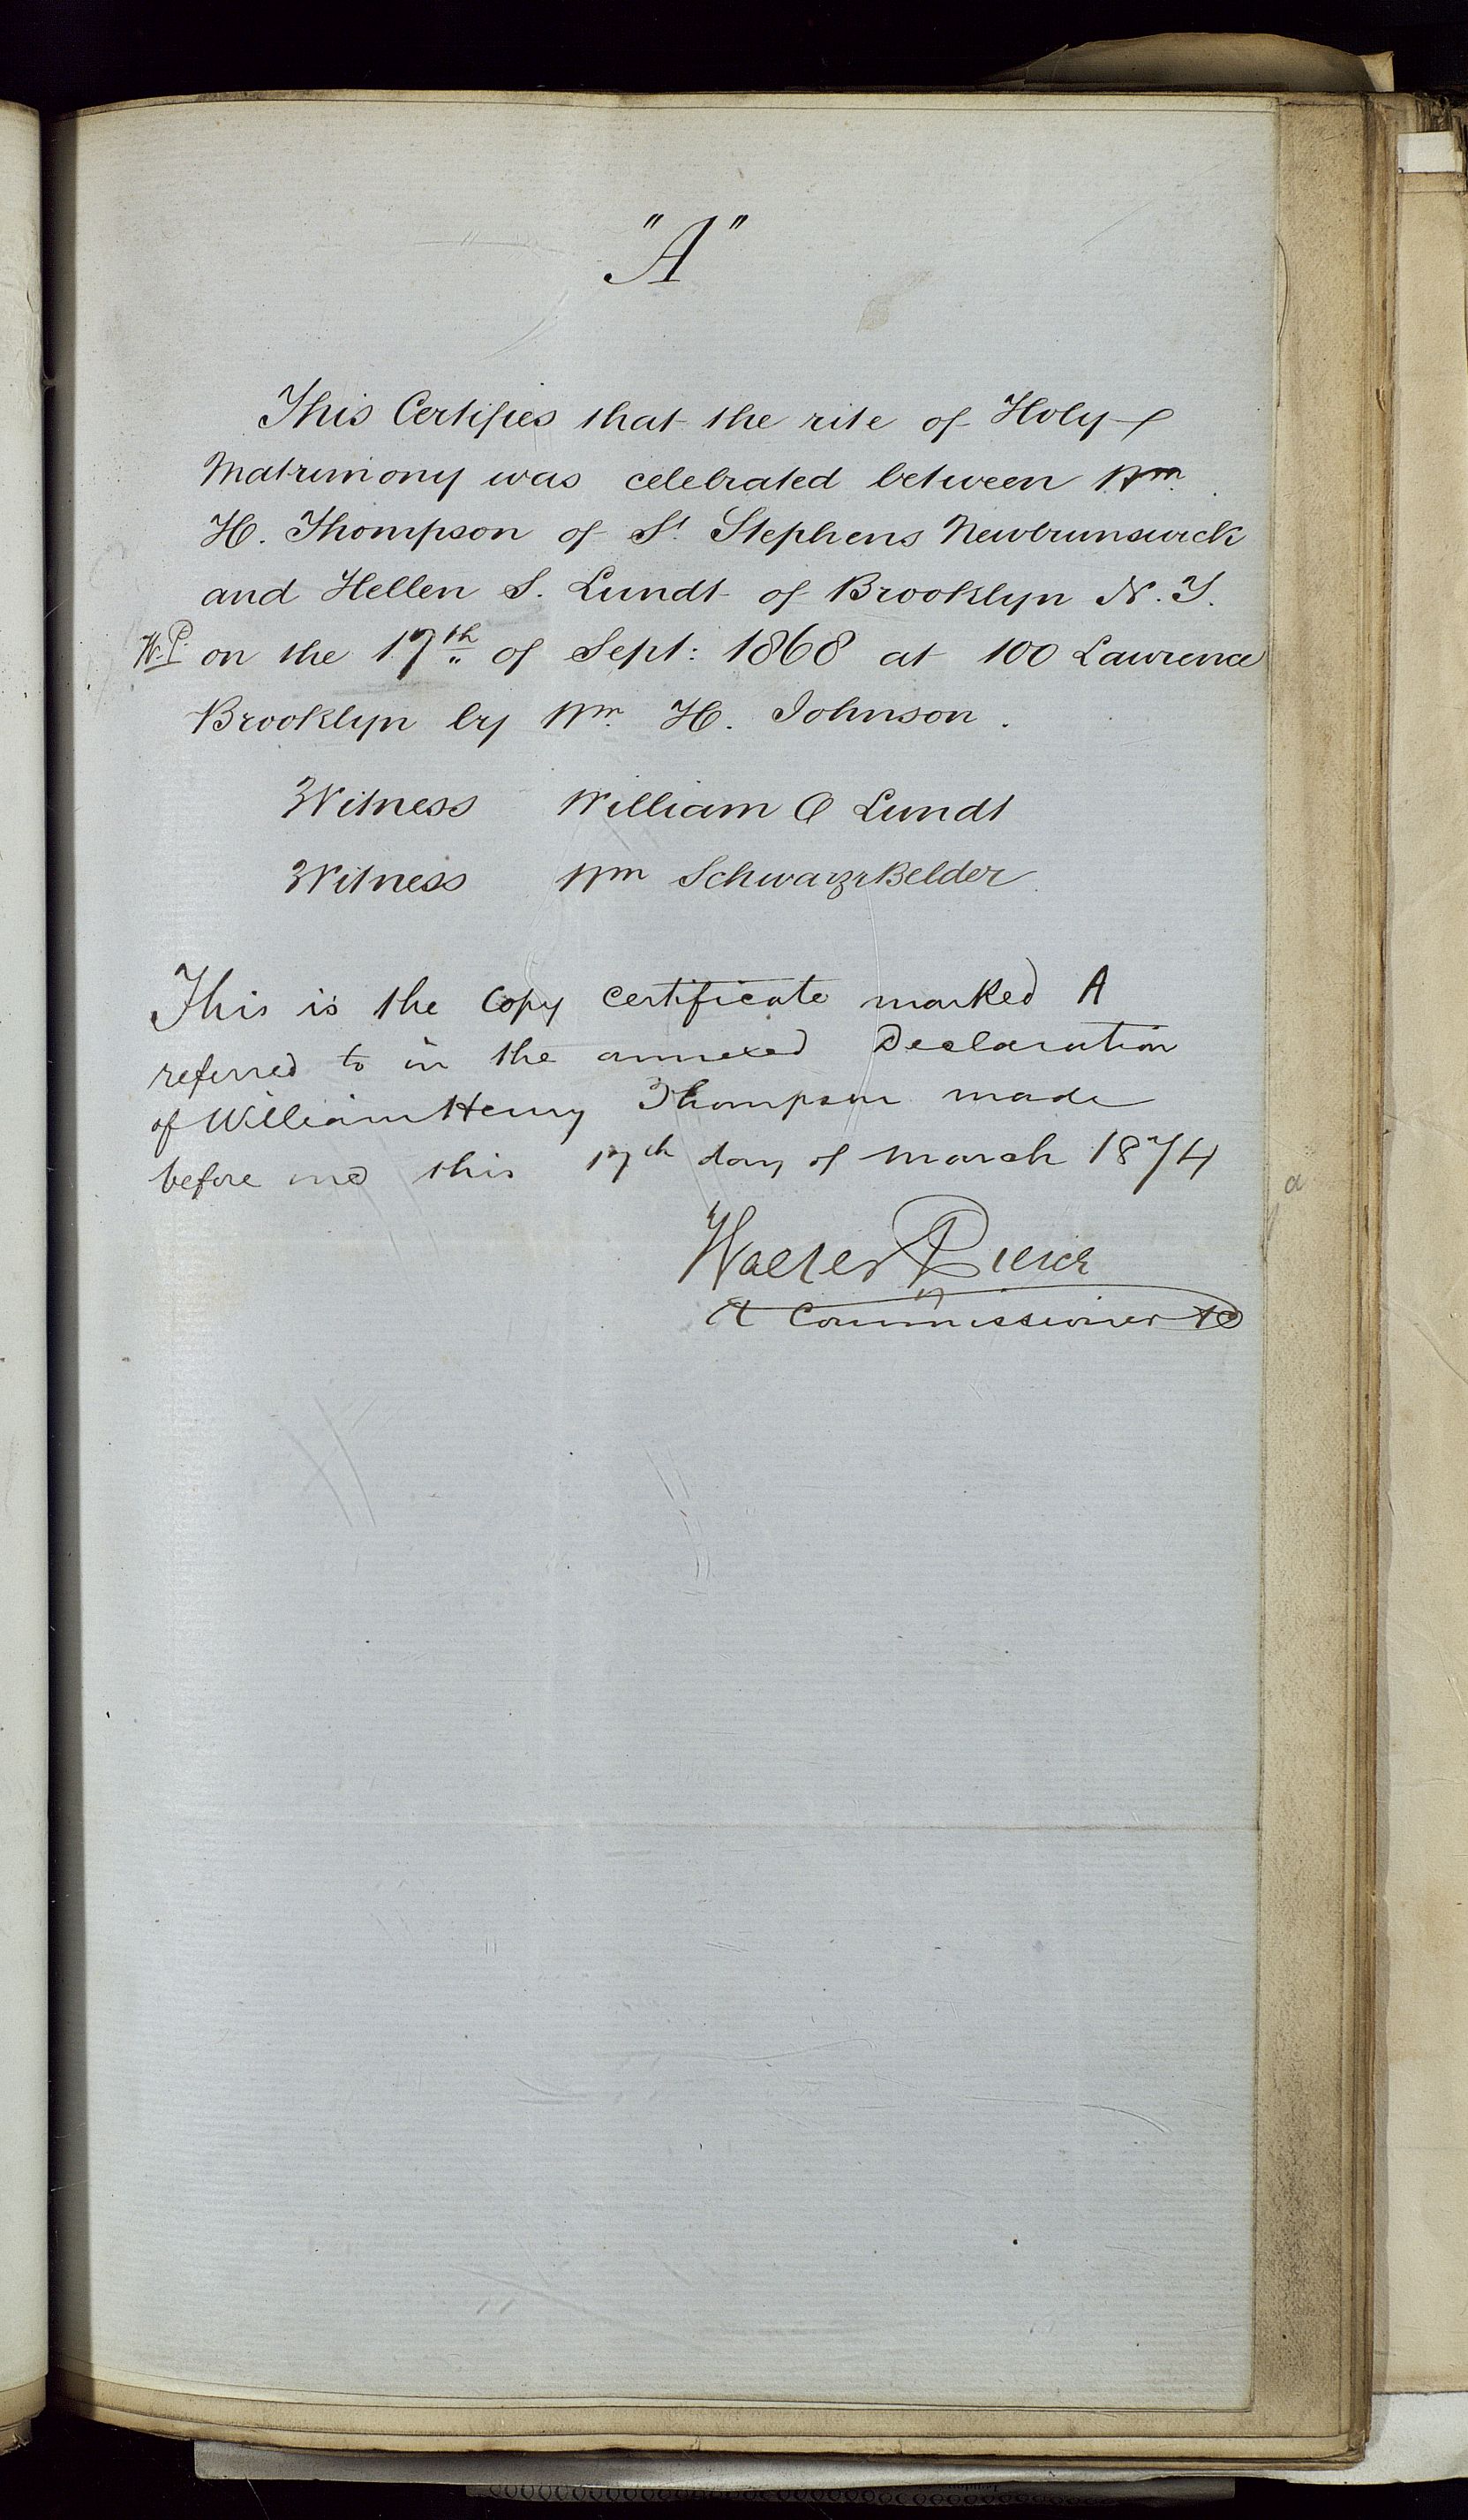 "A"
This Certifies that the rite of Holy
Matrimony was celebrated between Wm
H. Thompson of St Stephens Newbrunswick
and Hellen S. Lundt of Brooklyn N. Y.
W.P. on the 17th of Sept: 1868 at 100 Lawrence
Brooklyn by Wm. H. Johnson.
Witness William O Lundt
Witness Wm SchwarzBelder
This is the Copy certificate marked A
referred to in the annexed Declaration
of William Henry Thompson made
before me this 17th day of March 1874
Walter Pierce
A Commissioner &c
a